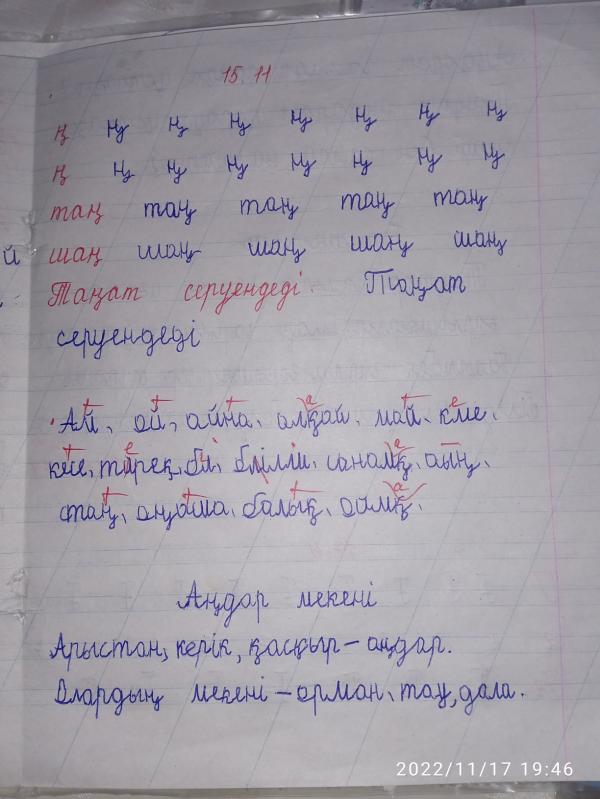 15. 11
ң ң ң ң ң ң ң ң
ң ң ң ң ң ң ң ң
таң таң таң таң таң
шаң шаң шаң шаң шаң
Таңат серуендеді. Таңат
серуендеді
Ай, ой, айна, алқай, май, кме.
кесе, терек, би, білім, саналқ, аың,
таң, аңшма, балық, оймқ.
Аңдар мекені
Арыстан, керік, қасқыр – аңдар.
Олардың мекені – орман, тау, дала.
2022/11/17 19:46